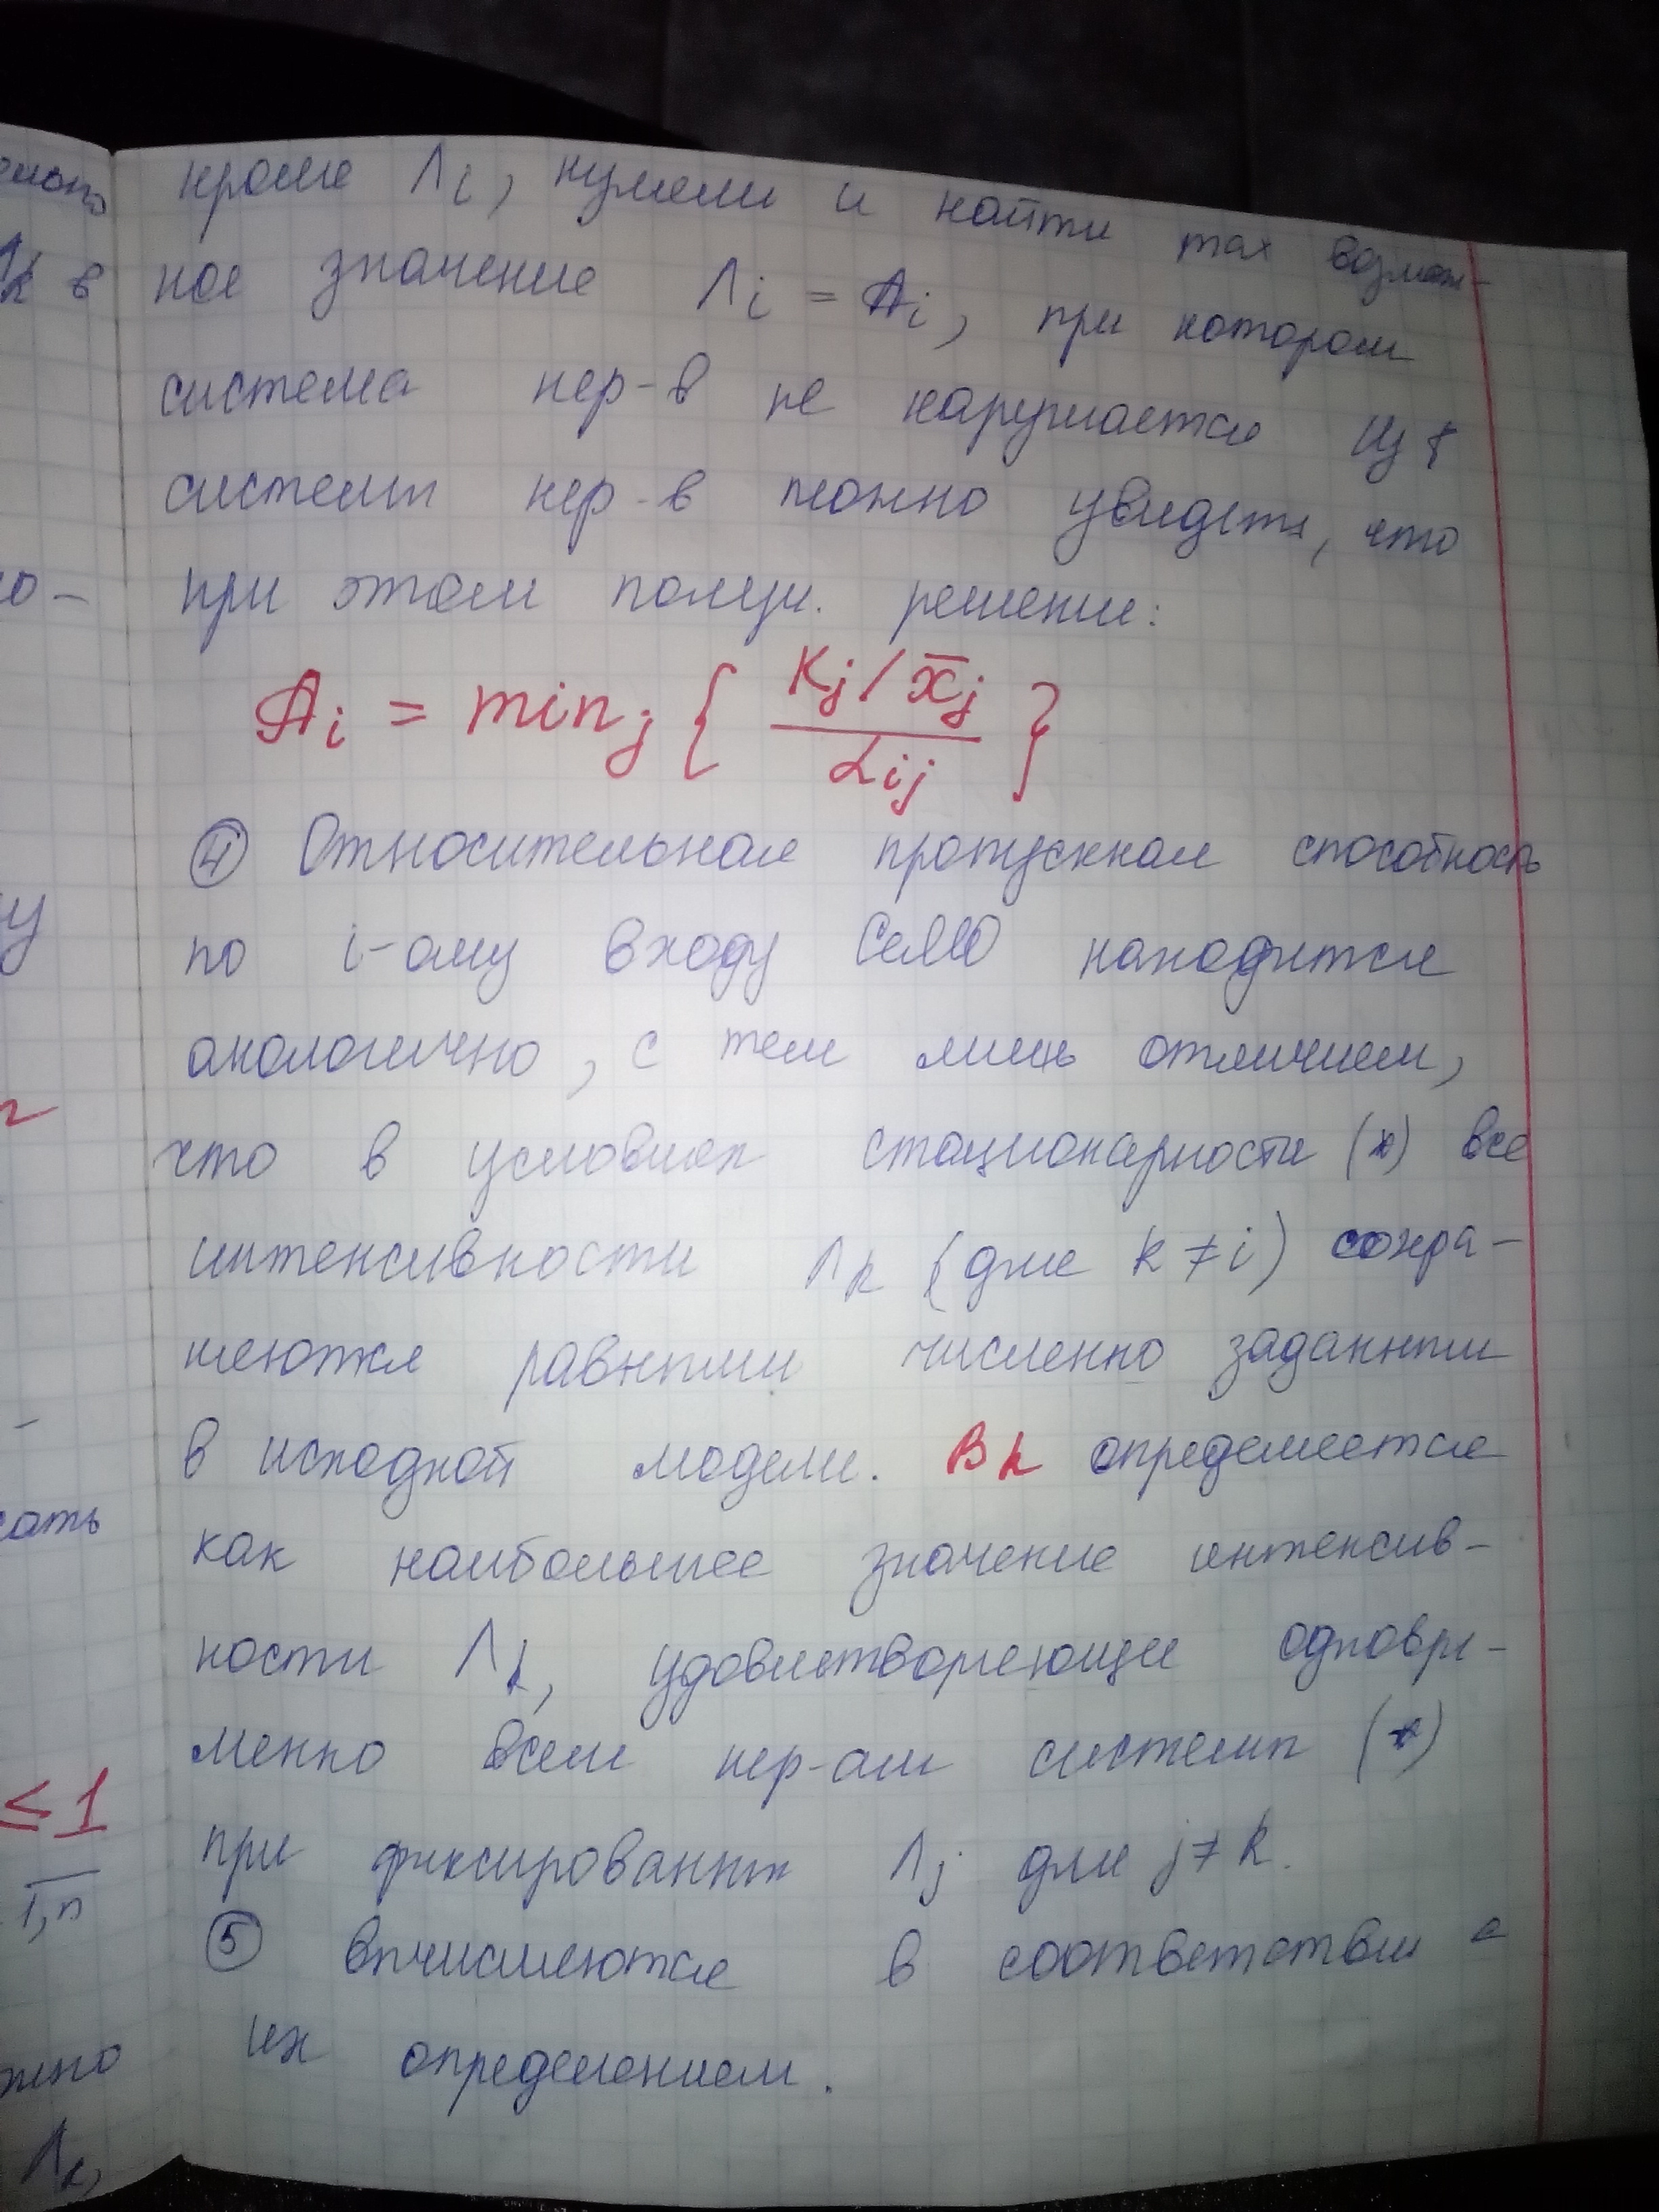 кроме Λi, нулями и найти max возмож-
ное значение Λi = Ai, при котором
система нер-в не нарушается Из
систем нер-в можно увидеть, что
при этом получ. решение:
Ai = minj { Kj / x̄j / αij }
④ Относительная пропускная способность
по i-ому входу СеМО находится
аналогично, с тем лишь отличием,
что в условиях стационарности (*) все
интенсивности Λk (для k ≠ i) сохра-
няются равными численно заданным
в исходной модели. Bk определяется
как наибольшее значение интенсив-
ности Λk, удовлетворяющее одновре-
менно всем нер-ам системы (*)
при фиксированных Λj для j ≠ k.
⑤ Вычисляются в соответствии с
их определением.
k в
о-
у
сать
≤ 1
1,n
жно
Λk,